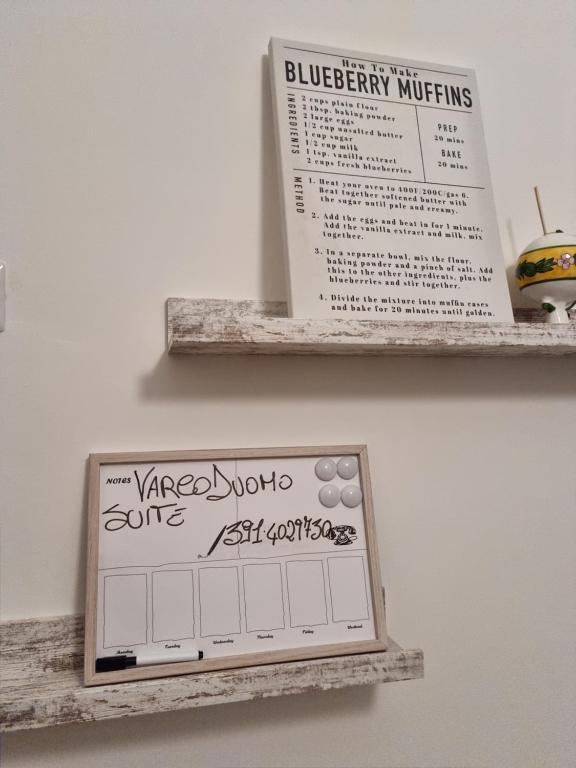 How To Make
BLUEBERRY MUFFINS
INGREDIENTS
2 cups plain flour
2 tbsp. baking powder
2 large eggs
1/2 cup unsalted butter
1 cup sugar
1/2 cup milk
1 tsp. vanilla extract
2 cups fresh blueberries
PREP
20 mins
BAKE
20 mins
METHOD
1. Heat your oven to 400F/200C/gas 6.
Beat together softened butter with
the sugar until pale and creamy.
2. Add the eggs and beat in for 1 minute.
Add the vanilla extract and milk, mix
together.
3. In a separate bowl, mix the flour,
baking powder and a pinch of salt. Add
this to the other ingredients, plus the
blueberries and stir together.
4. Divide the mixture into muffin cases
and bake for 20 minutes until golden.
NOTES VARCODUOMO
SUITE
391·4029730
Monday Tuesday Wednesday Thursday Friday Weekend